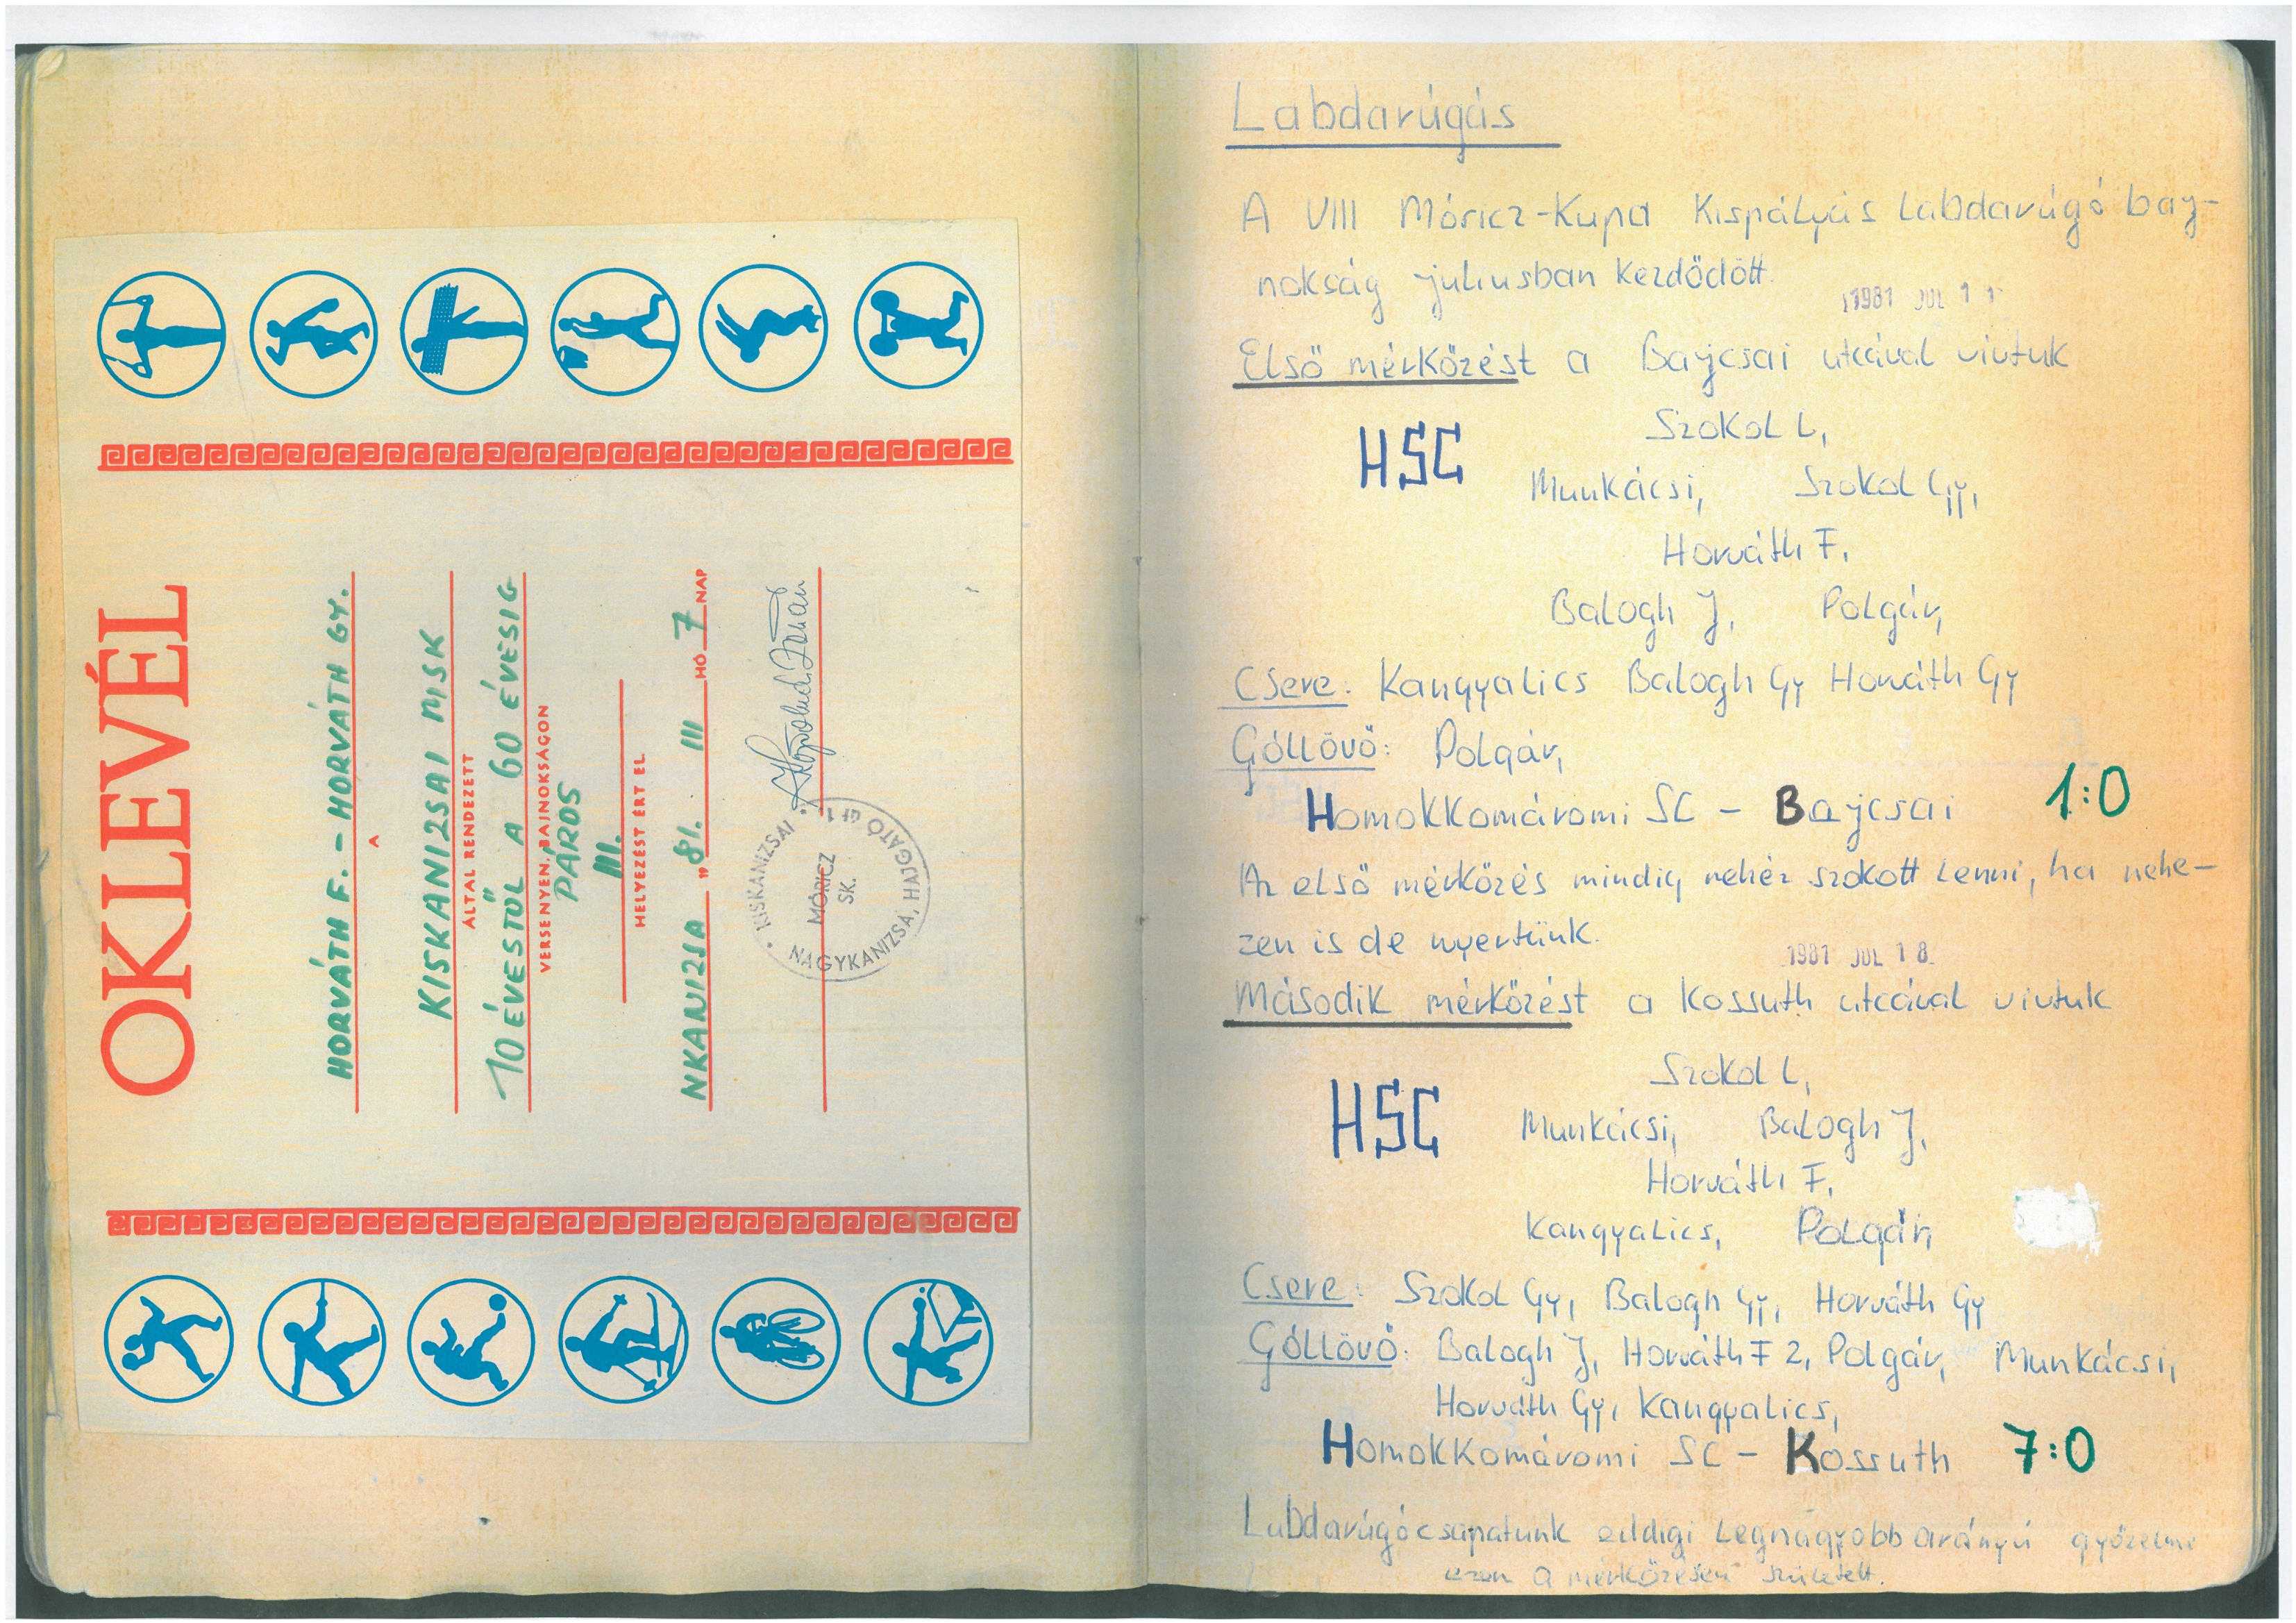 OKLEVÉL
HORVÁTH F. - HORVÁTH GY.
A
KISKANIZSAI MSK
ÁLTAL RENDEZETT
10 ÉVESTŐL A 60 ÉVESIG
VERSENYEN, BAJNOKSÁGON
PÁROS
III.
HELYEZÉST ÉRT EL
NKANIZSA "81. III HÓ 7 NAP
KISKANIZSAI
MÓRICZ
SK.
NAGYKANIZSA, HAJGATÓ ÚT 1
Labdarúgás
A VIII Móricz-Kupa Kispályás Labdarúgó baj-
nokság juliusban kezdődött.
1981 JUL 11
Első mérkőzést a Bajcsai utcával vivtuk
Szokol L,
HSC
Munkácsi, Szokol Gy,
Horváth F,
Balogh J, Polgár,
Csere: Kangyalics Balogh Gy Horváth Gy
Góllövő: Polgár,
Homokkomáromi SC - Bajcsai 1:0
Az első mérkőzés mindig nehéz szokott lenni, ha nehe-
zen is de nyertünk.
1981 JUL 18
Második mérkőzést a Kossuth utcával vivtuk
Szokol L,
HSC
Munkácsi, Balogh J,
Horváth F,
Kangyalics, Polgár,
Csere: Szokol Gy, Balogh Gy, Horváth Gy
Góllövő: Balogh J, Horváth F 2, Polgár, Munkácsi,
Horváth Gy, Kangyalics,
Homokkomáromi SC - Kossuth 7:0
Labdarúgócsapatunk eddigi legnagyobb arányú győzelme
ezen a mérkőzésen született.